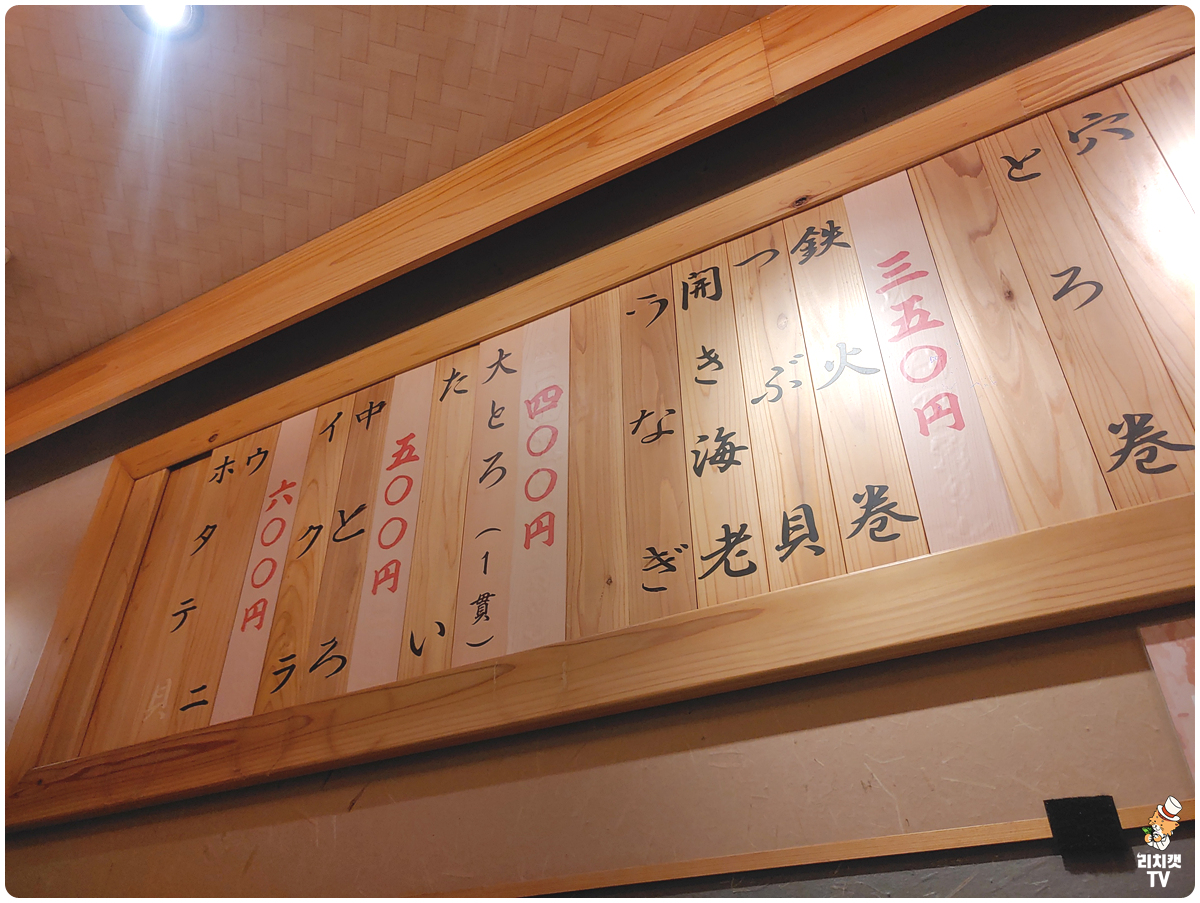 穴
とろ巻
三五〇円
鉄火巻
つぶ貝
開き海老
うなぎ
四〇〇円
大とろ(1貫)
たい
五〇〇円
中とろ
イクラ
六〇〇円
ウニ
ホタテ貝
리치캣
TV